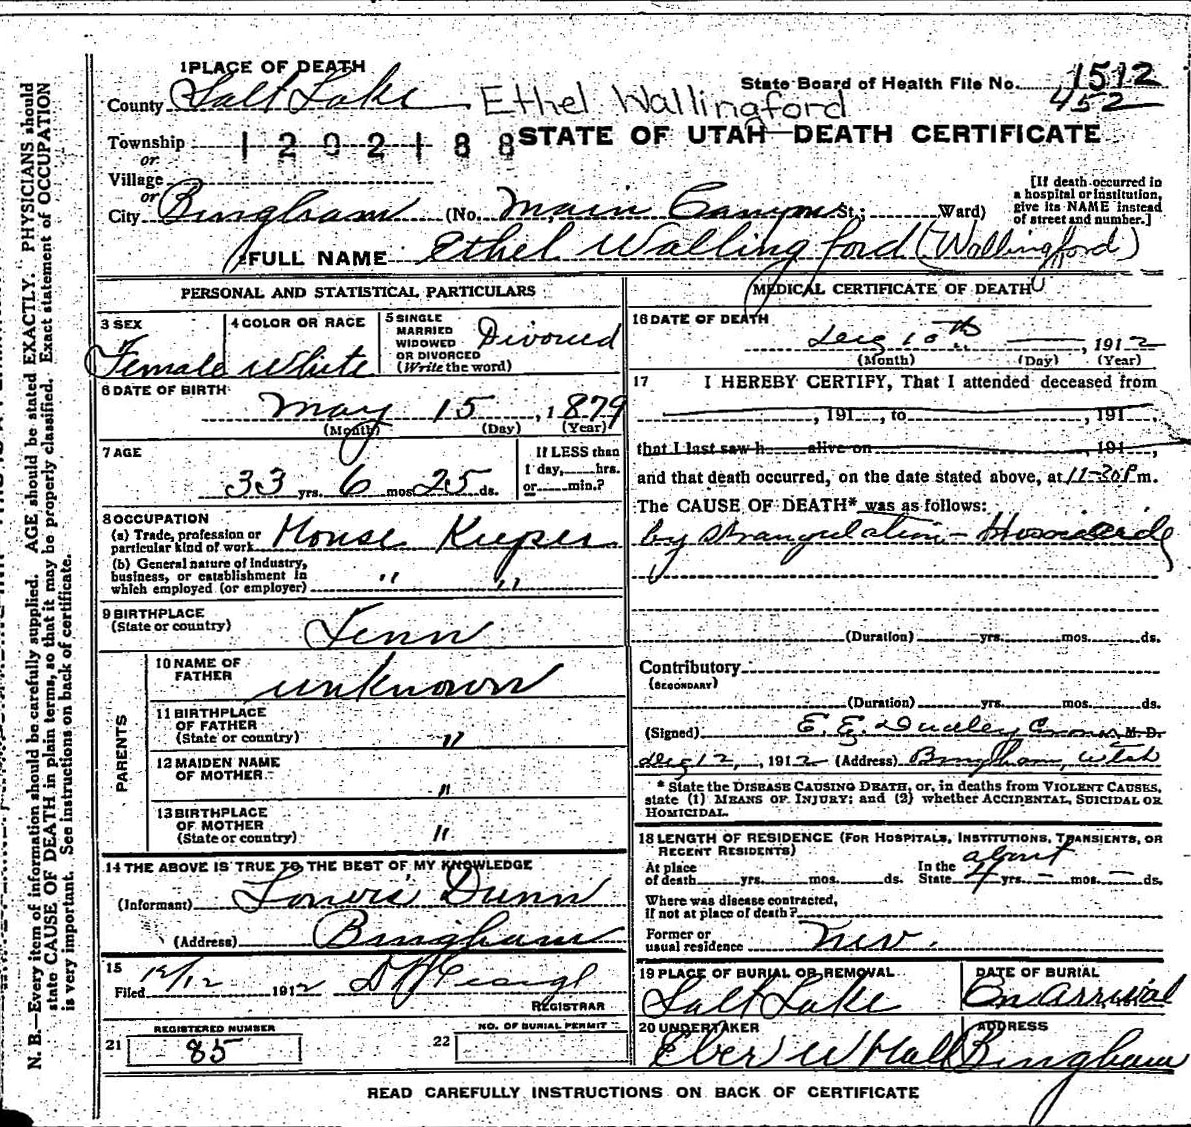 1 PLACE OF DEATH
State Board of Health File No. 1512
County Salt Lake Ethel Wallingford 452
Township 1202188 STATE OF UTAH—DEATH CERTIFICATE
or
Village
or
City Bingham (No. Main Canyon St.; Ward)
[If death occurred in a hospital or institution, give its NAME instead of street and number.]
2 FULL NAME Ethel Wallingford (Wallingford)
PERSONAL AND STATISTICAL PARTICULARS
3 SEX
Female
4 COLOR OR RACE
White
5 SINGLE MARRIED WIDOWED OR DIVORCED (Write the word)
Divorced
6 DATE OF BIRTH
May 15, 1879
(Month) (Day) (Year)
7 AGE
33 yrs. 6 mos. 25 ds.
If LESS than 1 day, hrs. or min.?
8 OCCUPATION
(a) Trade, profession or particular kind of work House Keeper
(b) General nature of industry, business, or establishment in which employed (or employer) " "
9 BIRTHPLACE
(State or country) Tenn
PARENTS
10 NAME OF FATHER unknown
11 BIRTHPLACE OF FATHER (State or country) "
12 MAIDEN NAME OF MOTHER "
13 BIRTHPLACE OF MOTHER (State or country) "
14 THE ABOVE IS TRUE TO THE BEST OF MY KNOWLEDGE
(Informant) Dunn
(Address) Bingham
15
Filed 12/12 1912
REGISTRAR
REGISTERED NUMBER
21 85
22 NO. OF BURIAL PERMIT
MEDICAL CERTIFICATE OF DEATH
16 DATE OF DEATH
10th, 1912
(Month) (Day) (Year)
17 I HEREBY CERTIFY, That I attended deceased from
, 191 , to , 191 ,
that I last saw h alive on , 191 ,
and that death occurred, on the date stated above, at 11-30 P m.
The CAUSE OF DEATH* was as follows:
by Strangulation - Homicide
(Duration) yrs. mos. ds.
Contributory
(SECONDARY)
(Duration) yrs. mos. ds.
(Signed) E. E. Dudley M. D.
12, 1912 (Address) Bingham, Utah
* State the DISEASE CAUSING DEATH, or, in deaths from VIOLENT CAUSES, state (1) MEANS OF INJURY; and (2) whether ACCIDENTAL, SUICIDAL OR HOMICIDAL.
18 LENGTH OF RESIDENCE (FOR HOSPITALS, INSTITUTIONS, TRANSIENTS, OR RECENT RESIDENTS)
At place of death yrs. mos. ds. In the State about 4 yrs. — mos. — ds.
Where was disease contracted, if not at place of death?
Former or usual residence Nev.
19 PLACE OF BURIAL OR REMOVAL
Salt Lake
DATE OF BURIAL
On Arrival
20 UNDERTAKER
Eber W Hall
ADDRESS
Bingham
READ CAREFULLY INSTRUCTIONS ON BACK OF CERTIFICATE
N. B.—Every item of information should be carefully supplied. AGE should be stated EXACTLY. PHYSICIANS should
state CAUSE OF DEATH in plain terms, so that it may be properly classified. Exact statement of OCCUPATION
is very important. See instructions on back of certificate.